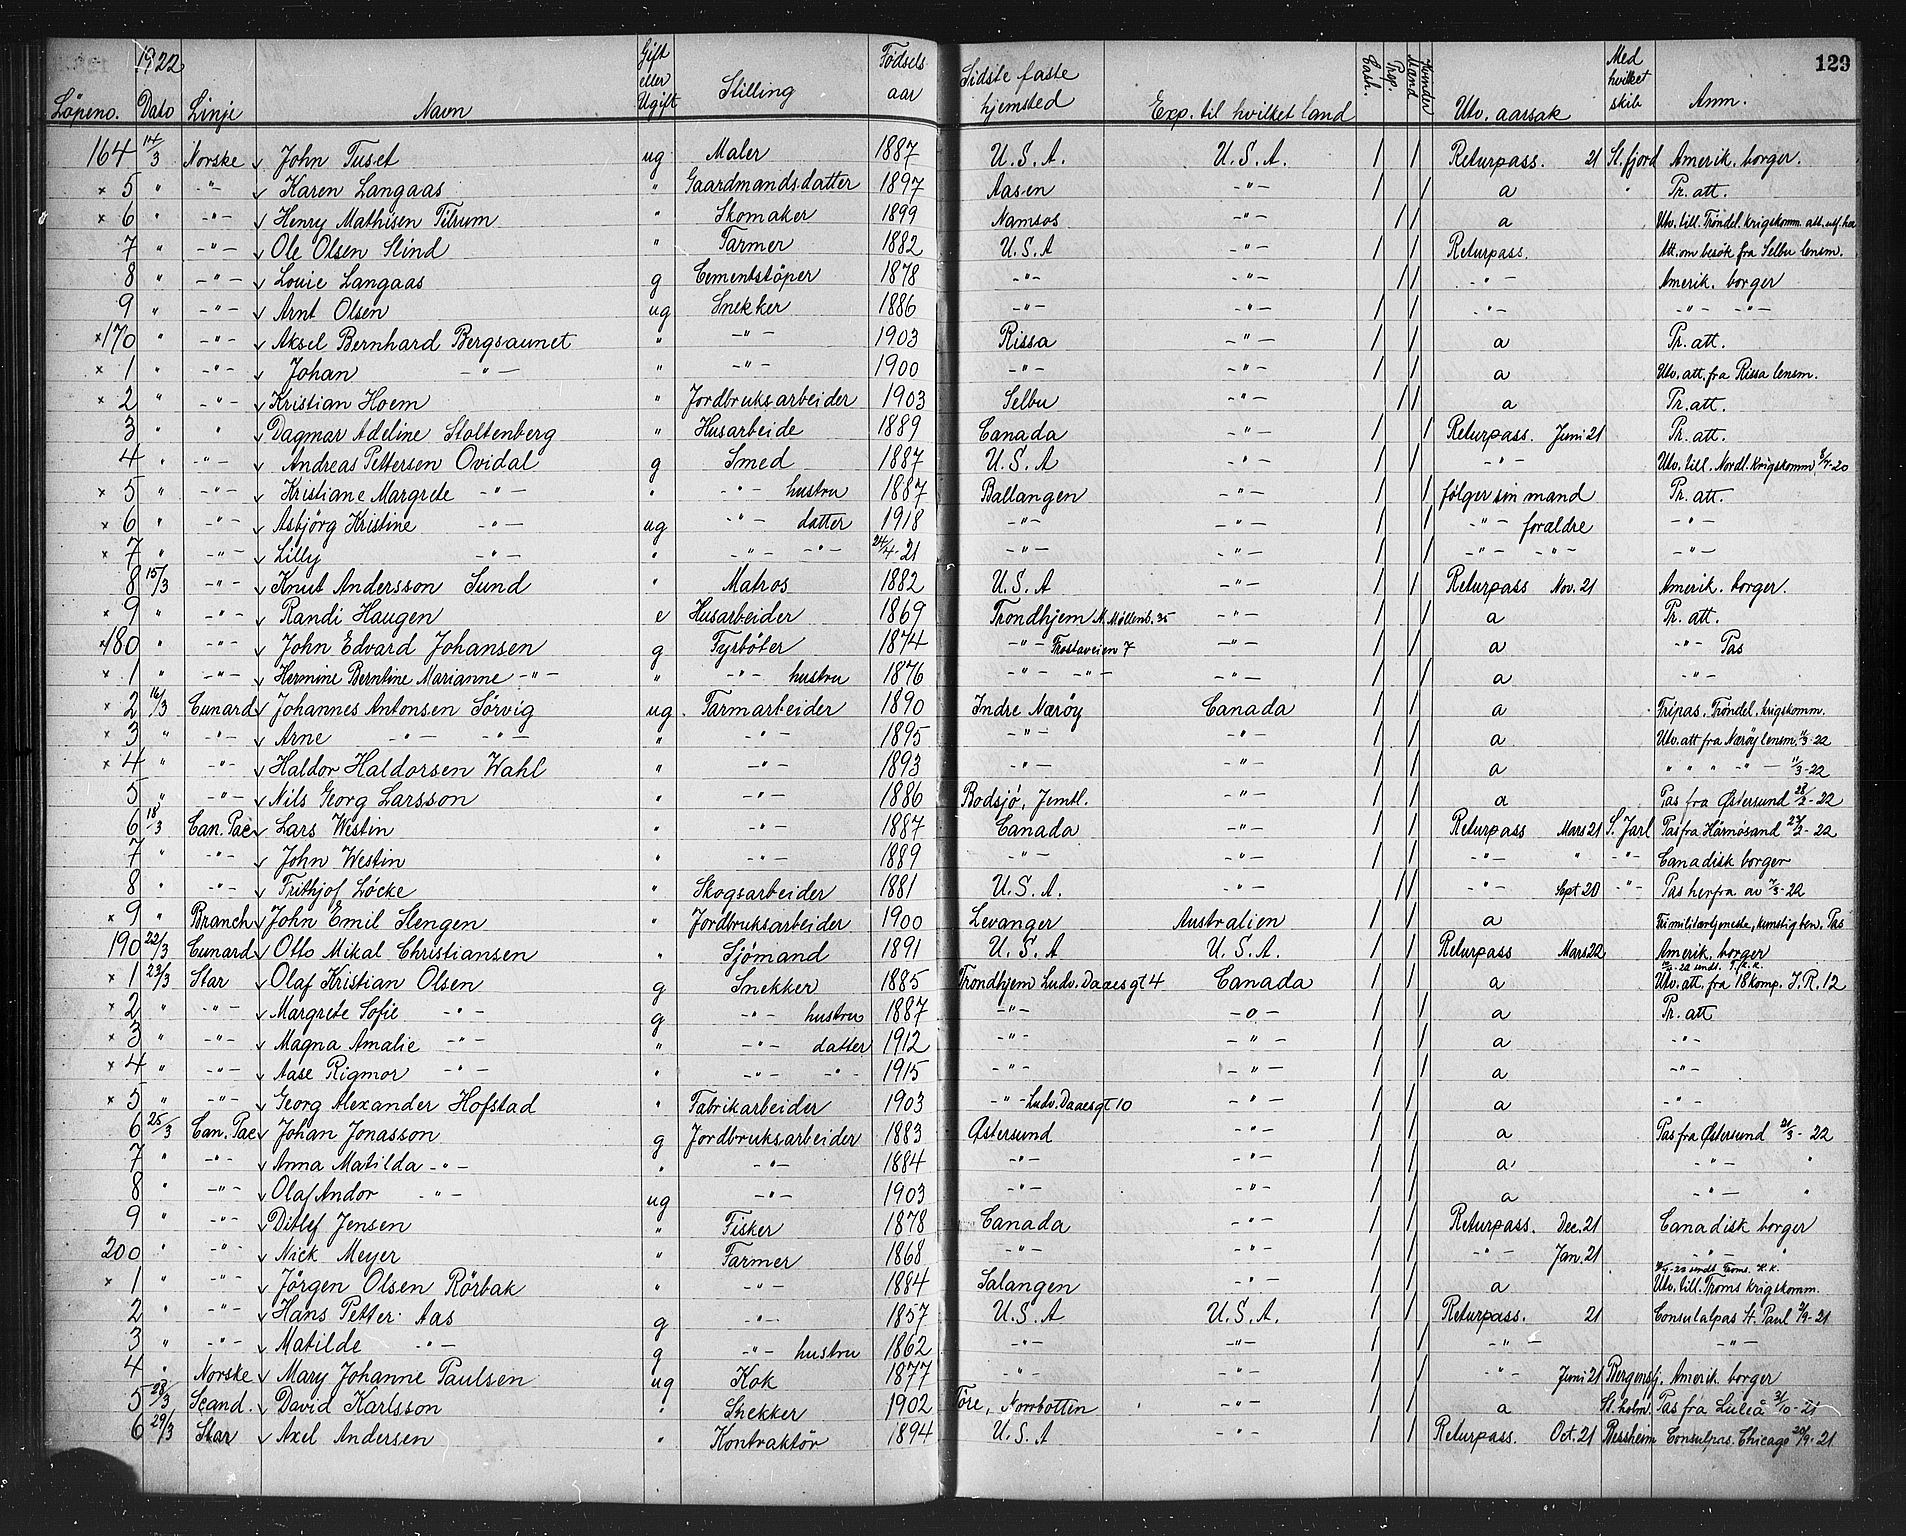 1922
129
Löpeno. Dato Linje Navn Gift eller Ugift Stilling Fødsels aar Sidste faste hjemsted Exp. til hvilket land Utv. aarsak Med hvilket skib Anm.
164 14/3 Norske John Tuset ug Maler 1887 U.S.A. U.S.A. / / Returpass. 21 St.fjord Amerik. borger.
x 5 " -"- Karen Langaas " Gaardmandsdatter 1897 Aasen -"- / / a " Pr. att.
x 6 " -"- Henry Mathisen Tilrum " Skomaker 1899 Namsos -"- / / a Utv. till. Tröndel. krigskomm. att.
7 " -"- Ole Olsen Slind " Farmer 1882 U.S.A -"- / / Returpass. Att. om besök fra Selbu lensm.
8 " -"- Louie Langaas g Cementstöper 1878 -"- -"- / / -"- Amerik. borger
9 " -"- Arnt Olsen ug Snekker 1886 -"- -"- / / -"- -"- -"-
x 170 " -"- Aksel Bernhard Bergsaunet " -"- 1903 Rissa -"- / / a Pr. att.
x 1 " -"- Johan -"- " -"- 1900 -"- -"- / / a Utv. att. fra Rissa lensm.
x 2 " -"- Kristian Hoem " Jordbruksarbeider 1903 Selbu -"- / / a Pr. att.
3 " " Dagmar Adeline Stoltenberg " Husarbeide 1889 Canada -"- / / Returpass. Juni 21 Pr. att.
4 " -"- Andreas Pettersen Ovidal g Smed 1887 U.S.A -"- / / -"- Utv. till. Nordl. krigskomm.
x 5 " -"- Kristiane Margrete -"- " -"- hustru 1887 Ballangen -"- / / følger sin mand Pr. att.
x 6 " -"- Asbjörg Kristine -"- ug -"- datter 1918 -"- -"- / / -"- foraldre -"-
x 7 " -"- Lilly -"- " -"- -"- 24/4-21 -"- -"- / / -"- -"- -"-
8 15/3 -"- Knut Andersson Sund " Matros 1882 U.S.A -"- / / Returpass Nov. 21 Amerik. borger.
x 9 " -"- Randi Haugen e Husarbeider 1869 Trondhjem N. Møllenb. 35 -"- / / a Pr. att.
x 180 " -"- John Edvard Johansen g Fyrböter 1874 -"- Frostaveien 7 -"- / / a -"- Pas
x 1 " -"- Hermine Berntine Marianne -"- " -"- hustru 1876 -"- -"- -"- / / a -"-
x 2 16/3 Cunard Johannes Antonsen Sörvig ug. Farmarbeider 1890 Indre Nærøy Canada / / a Fripas. Tröndel. krigskomm.
x 3 " -"- Arne -"- -"- " -"- 1895 -"- -"- / / a Utv. att fra Nærøy lensm. 11/3-22
x 4 " -"- Haldor Haldorsen Wahl " -"- 1893 -"- -"- / / a " " " -"- 11/3-22
5 " -"- Nils Georg Larsson " -"- 1886 Bodsjö, Jemtl. -"- / / a Pas fra Østersund 28/2-22
6 18/3 Can. Pac Lars Westin " -"- 1887 Canada -"- / / Returpass Mars 21 S. Jarl Pas fra Härnösand 27/2-22
7 " -"- John Westin " -"- 1889 -"- -"- / / -"- " -"- Canadisk borger
8 " -"- Frithjof Löcke " Skogsarbeider 1881 U.S.A. -"- / / -"- Sept 20 -"- Pas herfra av 7/3-22
x 9 " Branch John Emil Stengen " Jordbruksarbeider 1900 Levanger Australien / / a Fri militærtjeneste, kunstig ben. Pas
190 22/3 Cunard Otto Mikal Christiansen " Sjömand 1891 U.S.A U.S.A. / / Returpass Mars 22 Amerik. borger
x 1 23/3 Star Olaf Kristian Olsen g Snekker 1885 Trondhjem Ludv. Daaesgt 4 Canada / / a Utv. att. fra 18 komp. J.R. 12
x 2 " -"- Margrete Sofie -"- g -"- hustru 1887 -"- -"- / / a Pr. att
x 3 " -"- Magna Amalie -"- " -"- datter 1912 -"- -"- / / a -"-
x 4 " -"- Aase Rigmor -"- " -"- -"- 1915 -"- -"- / / a -"-
x 5 " -"- Georg Alexander Hofstad " Fabrikarbeider 1903 -"- Ludv. Daaesgt 10 -"- / / a -"-
6 25/3 Can. Pac Johan Jonasson g Jordbruksarbeider 1883 Østersund -"- / / a Pas fra Østersund 21/3-22
7 " -"- Anna Matilda -"- " -"- 1884 -"- -"- / / a -"- "
8 " -"- Olaf Andor -"- ug -"- 1903 -"- -"- / / a -"- "
9 " -"- Ditlef Jensen " Fisker 1878 Canada -"- / / Returpass. Dec. 21 Canadisk borger
200 " -"- Nick Meyer " Farmer 1868 -"- -"- / / -"- Jan. 21 -"- "
x 1 " -"- Jörgen Olsen Rörbak " -"- 1884 Salangen -"- / / a Utv. till. Troms krigskomm.
2 " -"- Hans Petter Aas g -"- 1857 U.S.A U.S.A. / / Returpass. 21 Consulatpas St. Paul 2/9-21
3 " -"- Matilde -"- g -"- hustru 1862 -"- -"- / / -"- -"-
4 " Norske Mary Johanne Paulsen ug Kok 1877 -"- -"- / / -"- Juni 21 Bergensfj. Amerik. borger
5 28/3 Scand. David Karlsson " Snekker 1902 Töre, Norrbotten -"- / / a St. holm Pas fra Luleå 31/10-21
6 29/3 Star Axel Andersen " Kontraktör 1894 U.S.A -"- / / Returpass. Oct. 21 Bessheim Consulpas. Chicago 20/9-21